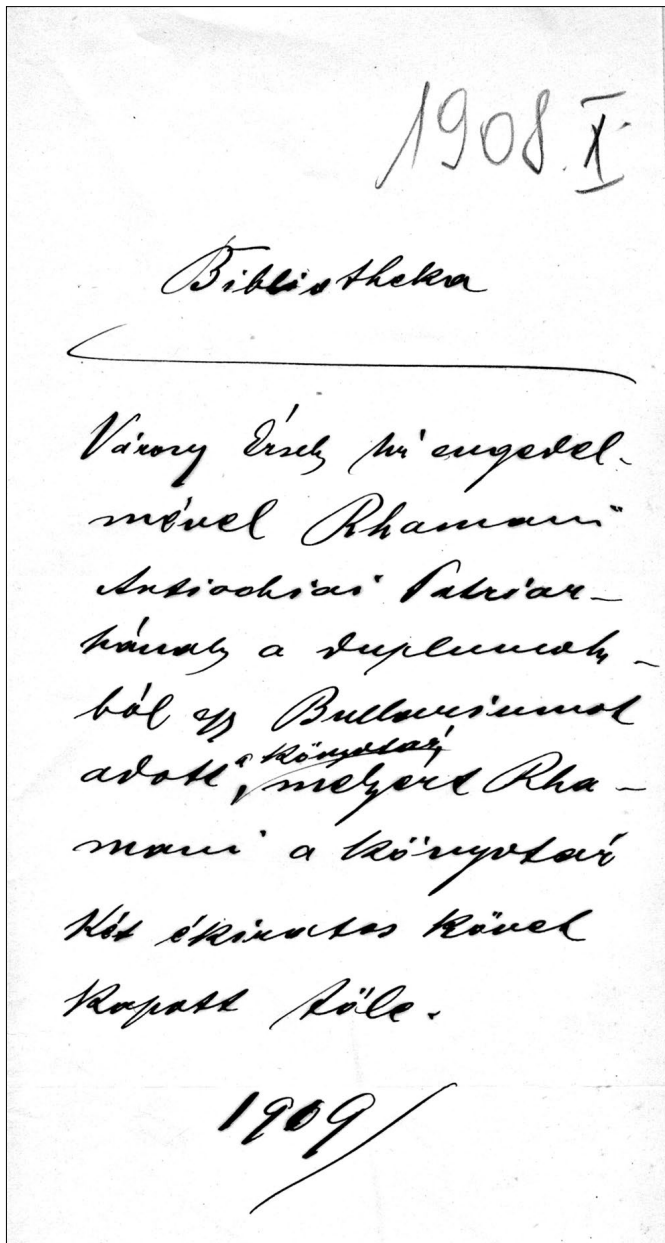 1908. X.
Bibliotheka
Városy Érsek úr engedel-
mével Rhamani
Antiochiai Patriar-
hának a duplumok-
ból egy Bullariumot
adott a könyvtár,
melyért Rha-
mani a könyvtár
két ékiratos követ
kapott tőle.
1909